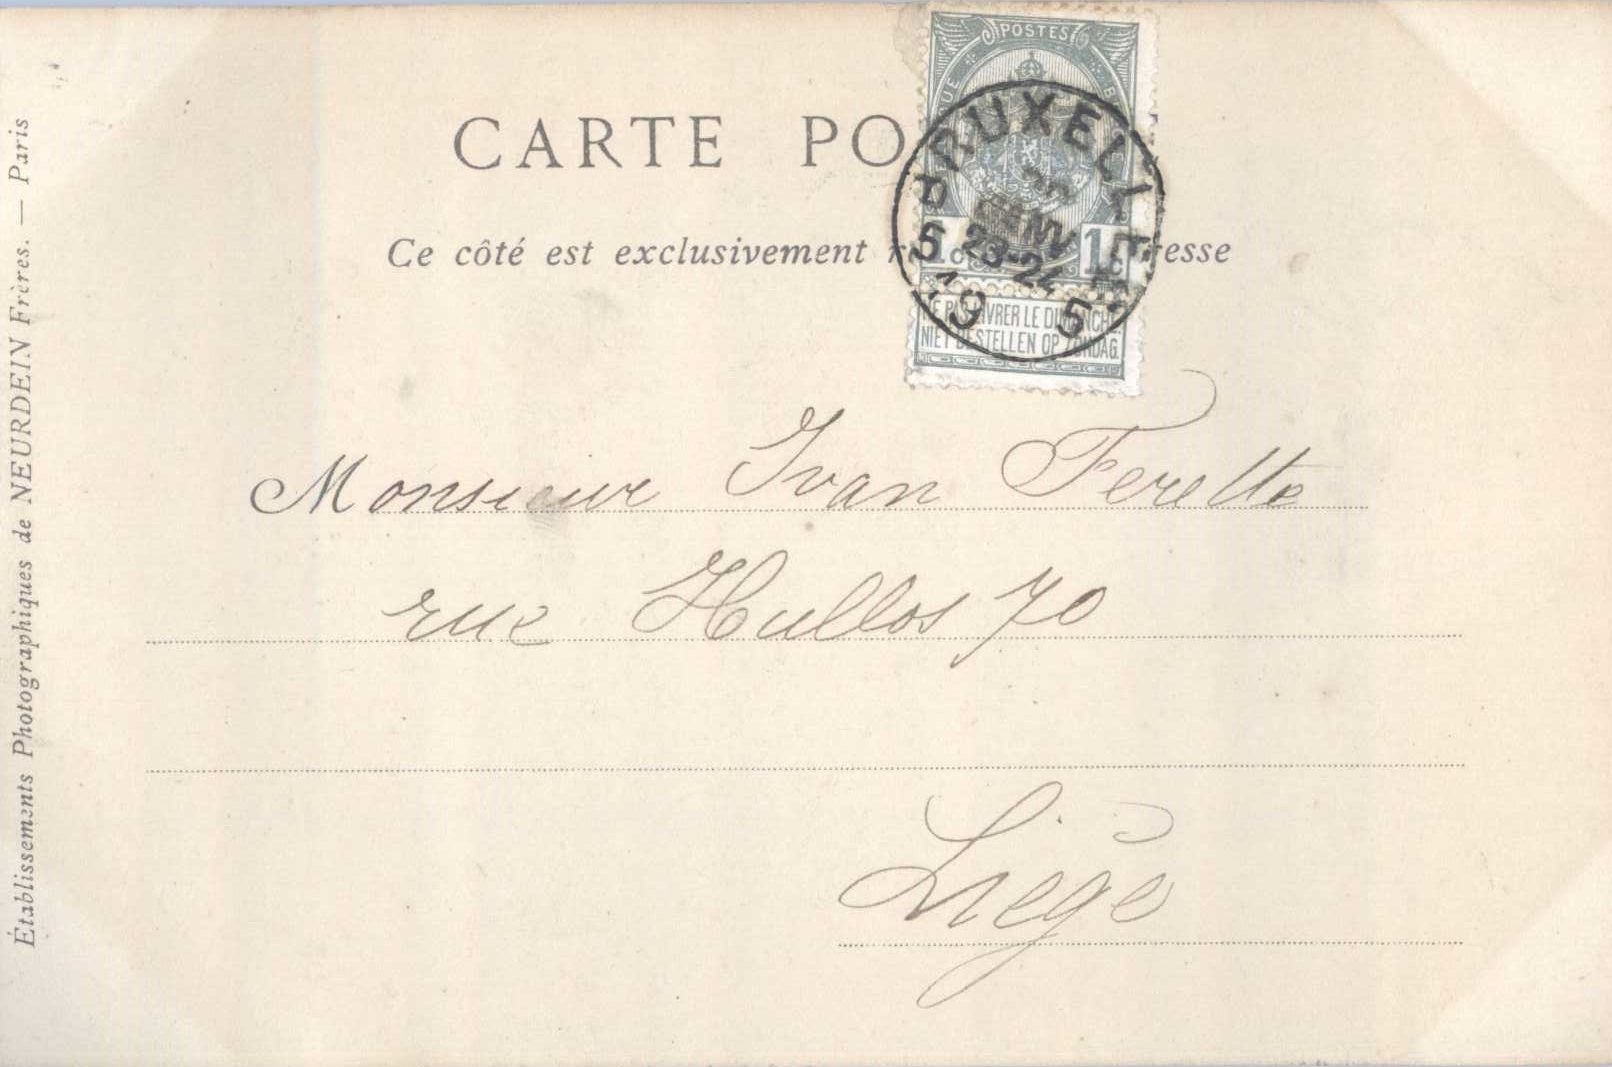 CARTE PO
Ce côté est exclusivement r esse
POSTES
1 1
NE PAS LIVRER LE DIMANCHE
NIET BESTELLEN OP ZONDAG
BRUXELLES
JANV
23-24
19 5
Monsieur Ivan Ferette
rue Hullos 70
Liège
Établissements Photographiques de NEURDEIN Frères. — Paris